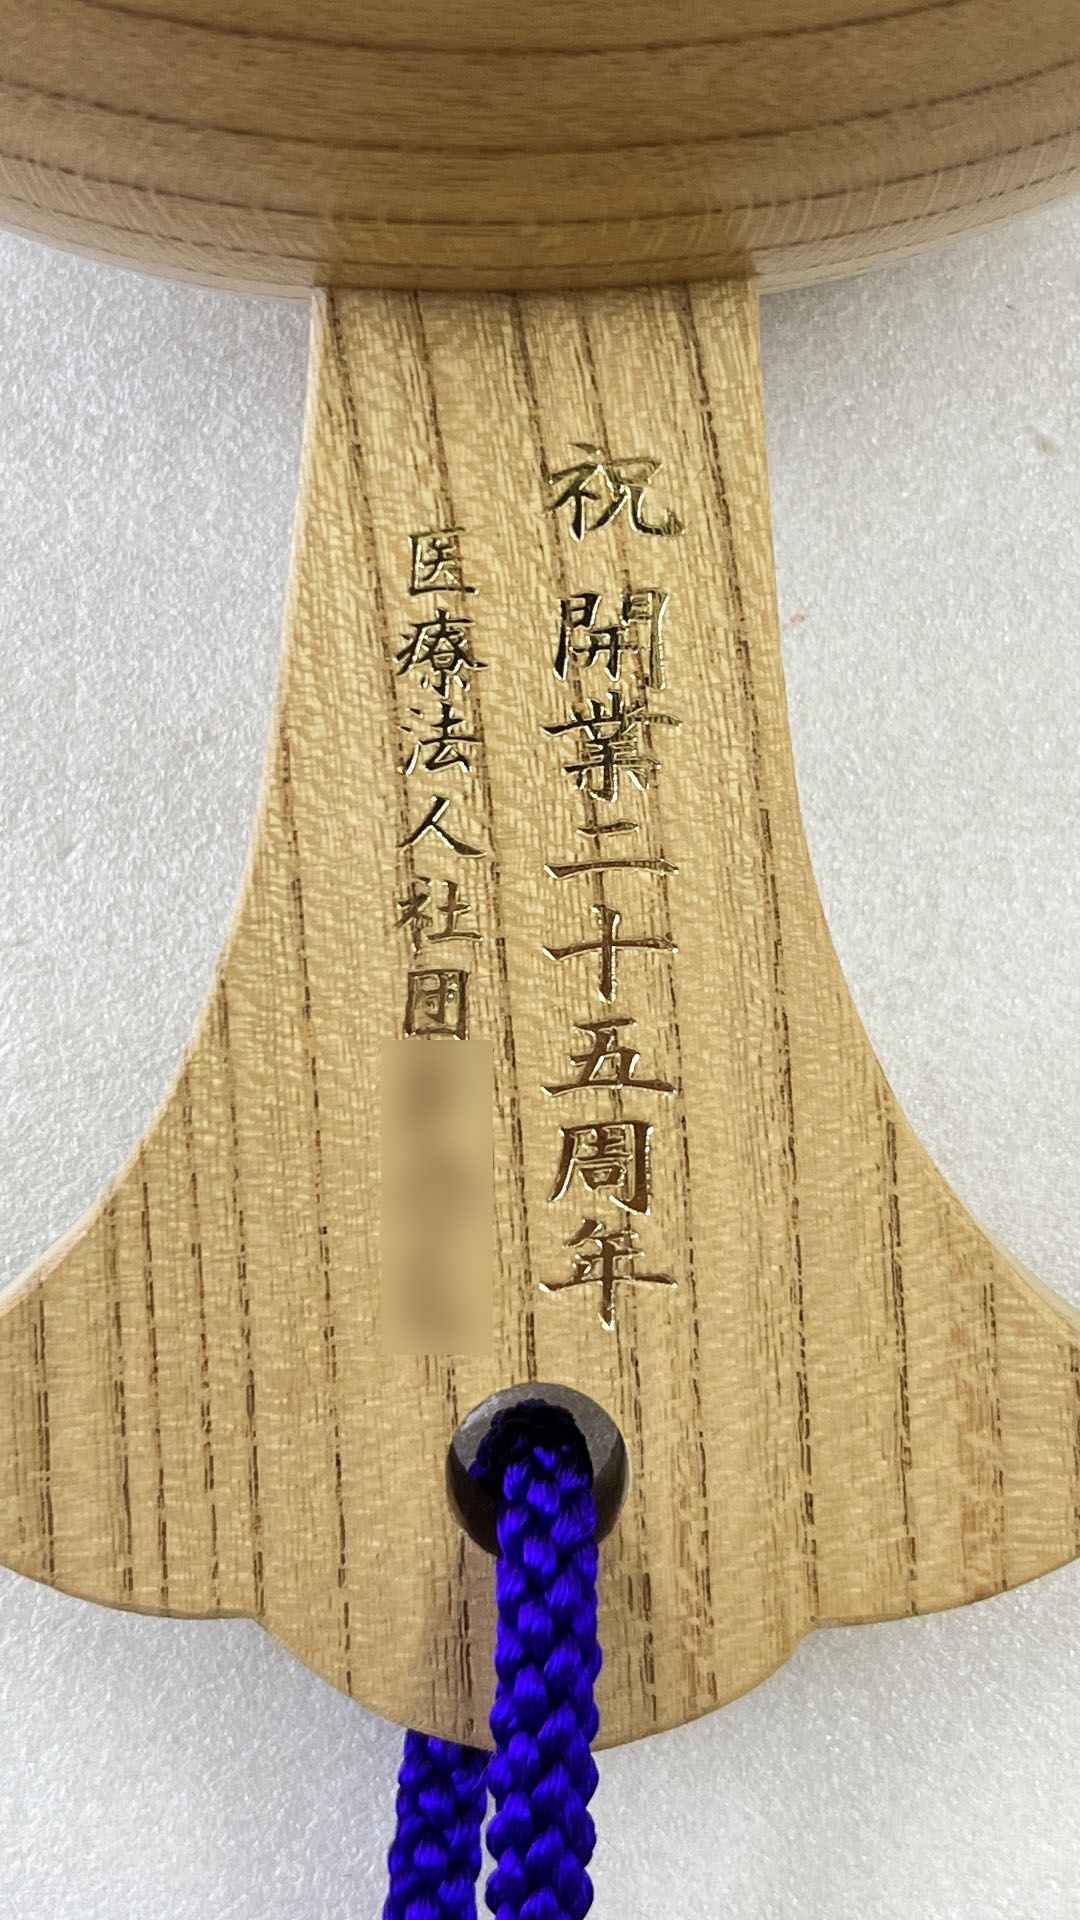 祝 開業二十五周年
医療法人社団